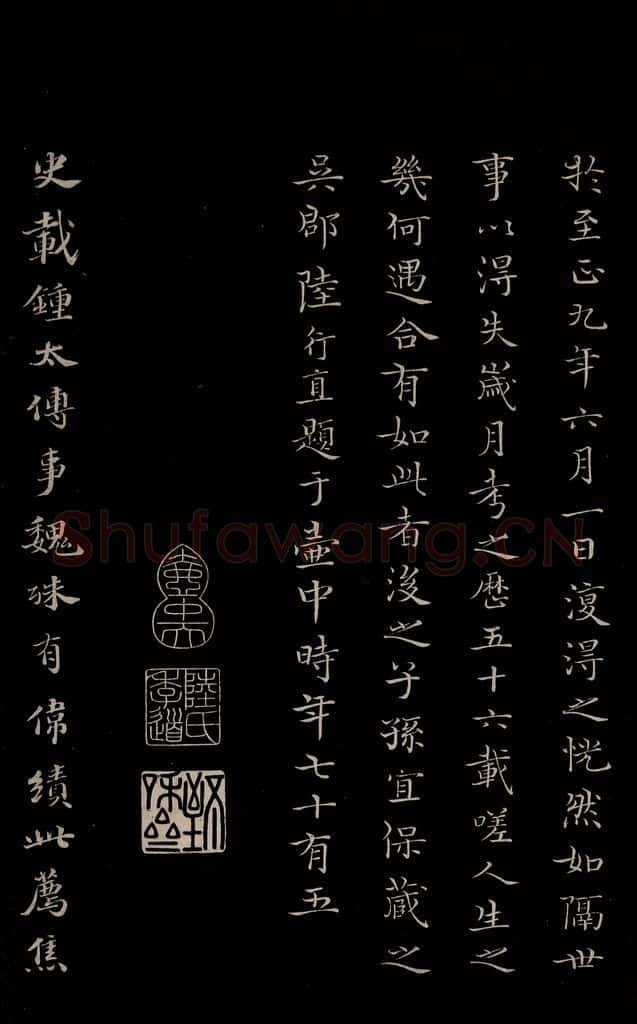 於至正九年六月一日復得之恍然如隔世
事以得失歲月考之歷五十六載嗟人生之
幾何遇合有如此者後之子孫宜保藏之
吳郡陸行直題于壺中時年七十有五
壺中天
陸氏季道
史載鍾太傅事魏殊有偉績此薦焦
Shufawang.CN